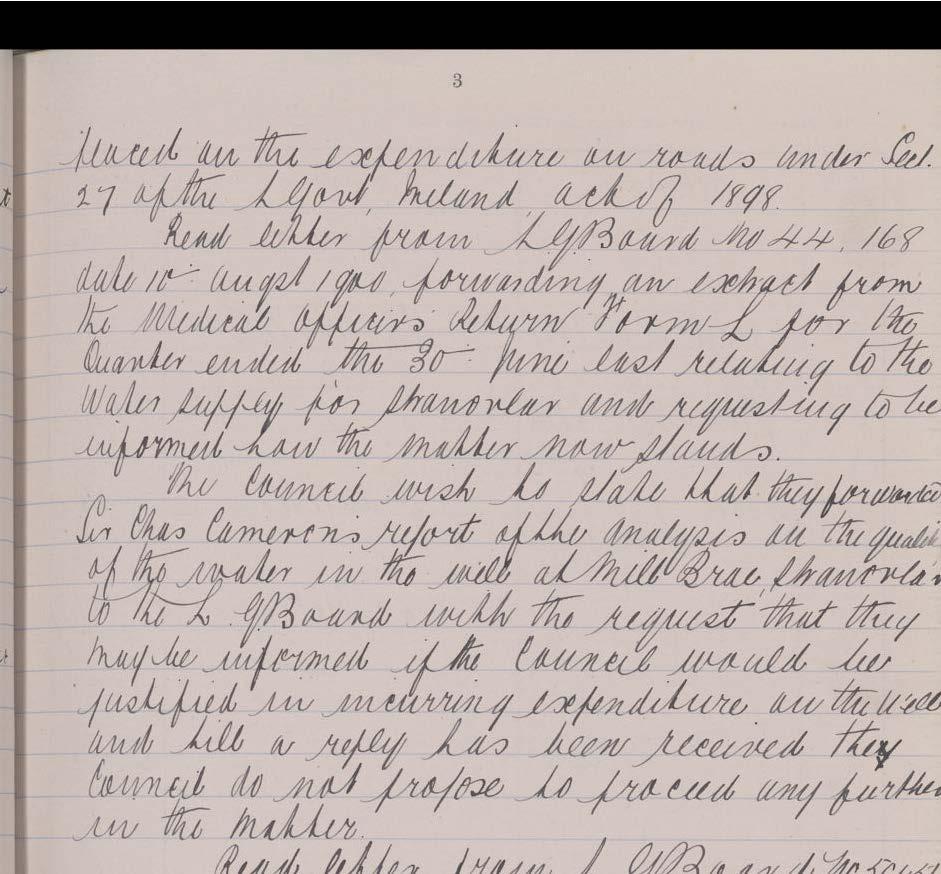 3
placed on the expenditure on roads under Sect.
27 of the L Govt, Ireland, act of 1898.
Read letter from L G Board No 44. 168
date 10th augst 1900, forwarding an extract from
the Medical officers Return Form L for the
Quarter ended the 30th June last relating to the
Water supply for Stranorlar and requesting to be
informed how the matter now stands.
The Council wish to state that they forwarded
Sir Chas Cameron's report of the analysis on the qualit
of the water in the well at Mill Brae, Stranorlar
to the L. G Board with the request that they
may be informed if the Council would be
justified in incurring expenditure on the Well
and till a reply has been received they
Council do not propose to proceed any further
in the matter.
Read letter from L G Board No